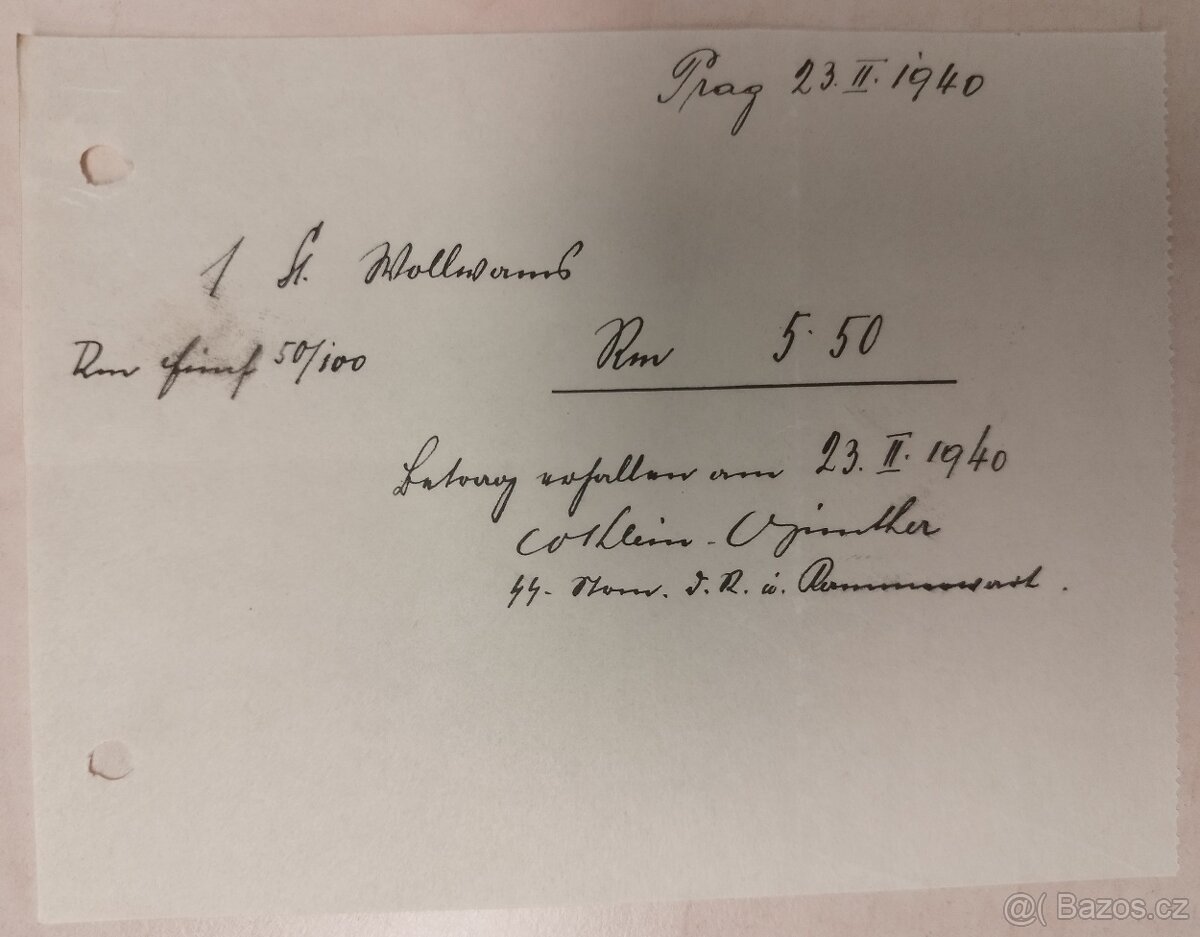 Prag 23. II. 1940
1 St. Wollwams
Rm 5·50
Rm fünf 50/100
Betrag erhalten am 23. II. 1940
Günther
SS- d. R. u. Kammerwart.
@( Bazos.cz